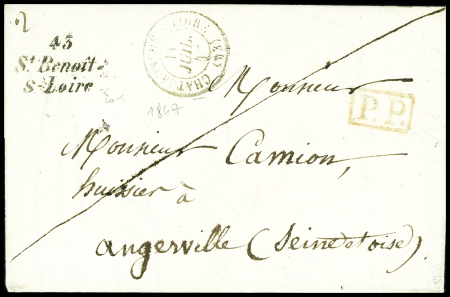 45
St Benoit-
s-Loire
11
JUIL.
(43)
1847
P.P.
Monsieur
Monsieur Camion,
huissier à
angerville (Seine et oise).